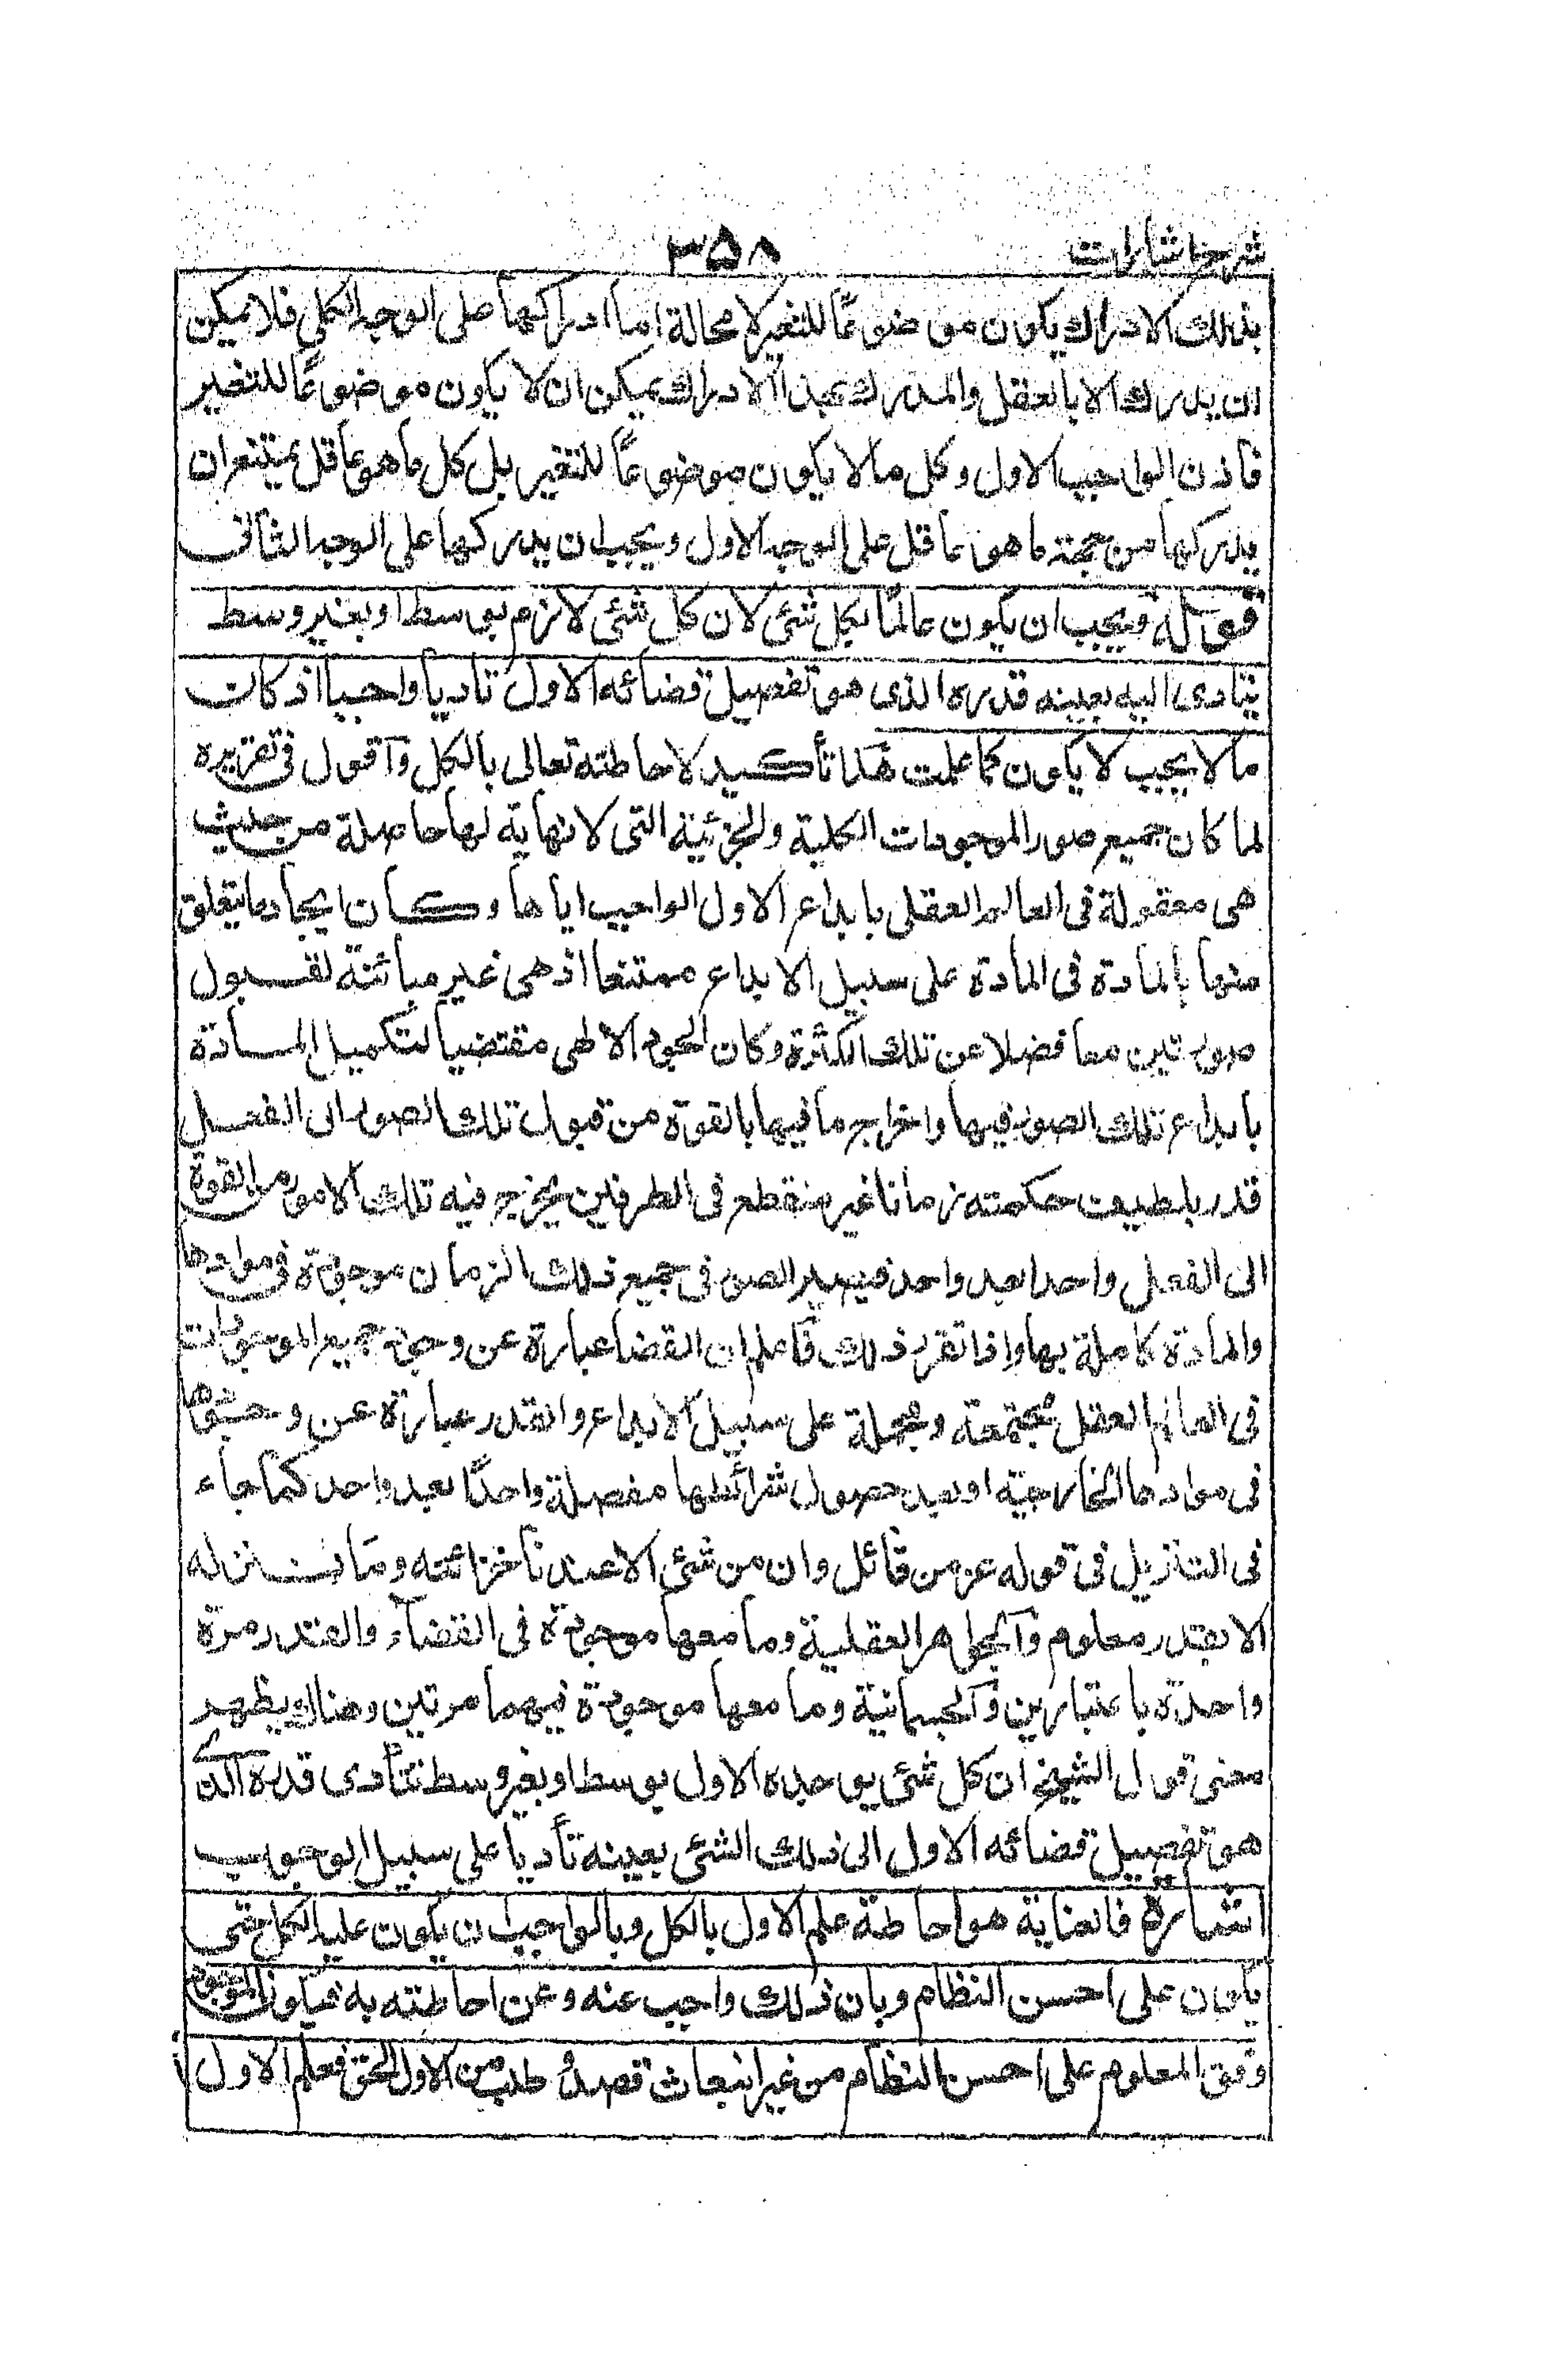 شرح اشارات
٣٥٨
بذلك الادراك يكون موضوعاً للتغير لا محالة اما ادراكها على الوجه الكلي فلا يمكن
ان يدرك الا بالعقل والمدرك بهذا الادراك يمكن ان لا يكون موضوعاً للتغير
فاذن الواجب الاول وكل ما لا يكون موضوعاً للتغير بل كل ما هو عاقل يمتنع ان
يدركها من جهة ما هو عاقل على الوجه الاول ويجب ان يدركها على الوجه الثانى
قوله ويجب ان يكون عالمًا بكل شئ لان كل شئ لازم بوسط او بغير وسط
يتادى اليه بعينه قدره الذى هو تفصيل قضائه الاول تاديا واجبا اذ كات
ما لا يجب لا يكون كما علمت هذا تأكيد لاحاطته تعالى بالكل وآقول فى تقريره
لما كان جميع صور الموجودات الكلية والجزئية التى لا نهاية لها حاصلة من حيث
هى معقولة فى العالم العقلى بابداع الاول الواجب اياها وكان ايجاد ما يتعلق
منها بالمادة فى المادة على سبيل الابداع ممتنعا اذ هى غير مبائنة لقبول
صورتين معا فضلا عن تلك الكثرة وكان الجود الالهى مقتضيا لتكميل المادة
بابداع تلك الصور فيها واخراج ما فيها بالقوة من قبول تلك الصور الى الفعل
قدر بلطيف حكمته زمانا غير منقطع فى الطرفين يخرج فيه تلك الامور من القوة
الى الفعل واحدا بعد واحد فيصير الصور فى جميع ذلك الزمان موجودة فى موادها
والمادة كاملة بها واذا تقرر ذلك فاعلم ان القضا عبارة عن وجود جميع الموجودات
فى العالم العقل مجتمعة ومجملة على سبيل الابداع والقدر عبارة عن وجودها
فى موادها الخارجية او بعد حصول شرائطها مفصلة واحدًا بعد واحد كما جاء
فى التنزيل فى قوله عز من قائل وان من شئ الا عندنا خزائنه وما ننزله
الا بقدر معلوم وآلجواهر العقلية وما معها موجودة فى القضاء والقدر مرة
واحدة باعتبارين وآلجسمانية وما معها موجودة فيهما مرتين وهناك يظهر
معنى قول الشيخ ان كل شئ يوجده الاول بوسط او بغير وسط تتأدى قدره الذى
هو تفصيل قضائه الاول الى ذلك الشئ بعينه تأديا على سبيل الوجوب
اشارة فالعناية هو احاطة علم الاول بالكل وبالواجب ان يكون عليه الكل حتى
يكون على احسن النظام وبان ذلك واجب عنه وعن احاطته به فيكون الموجود
وفق المعلوم على احسن النظام من غير انبعاث قصد وطلب من الاول الحق فعلم الاول